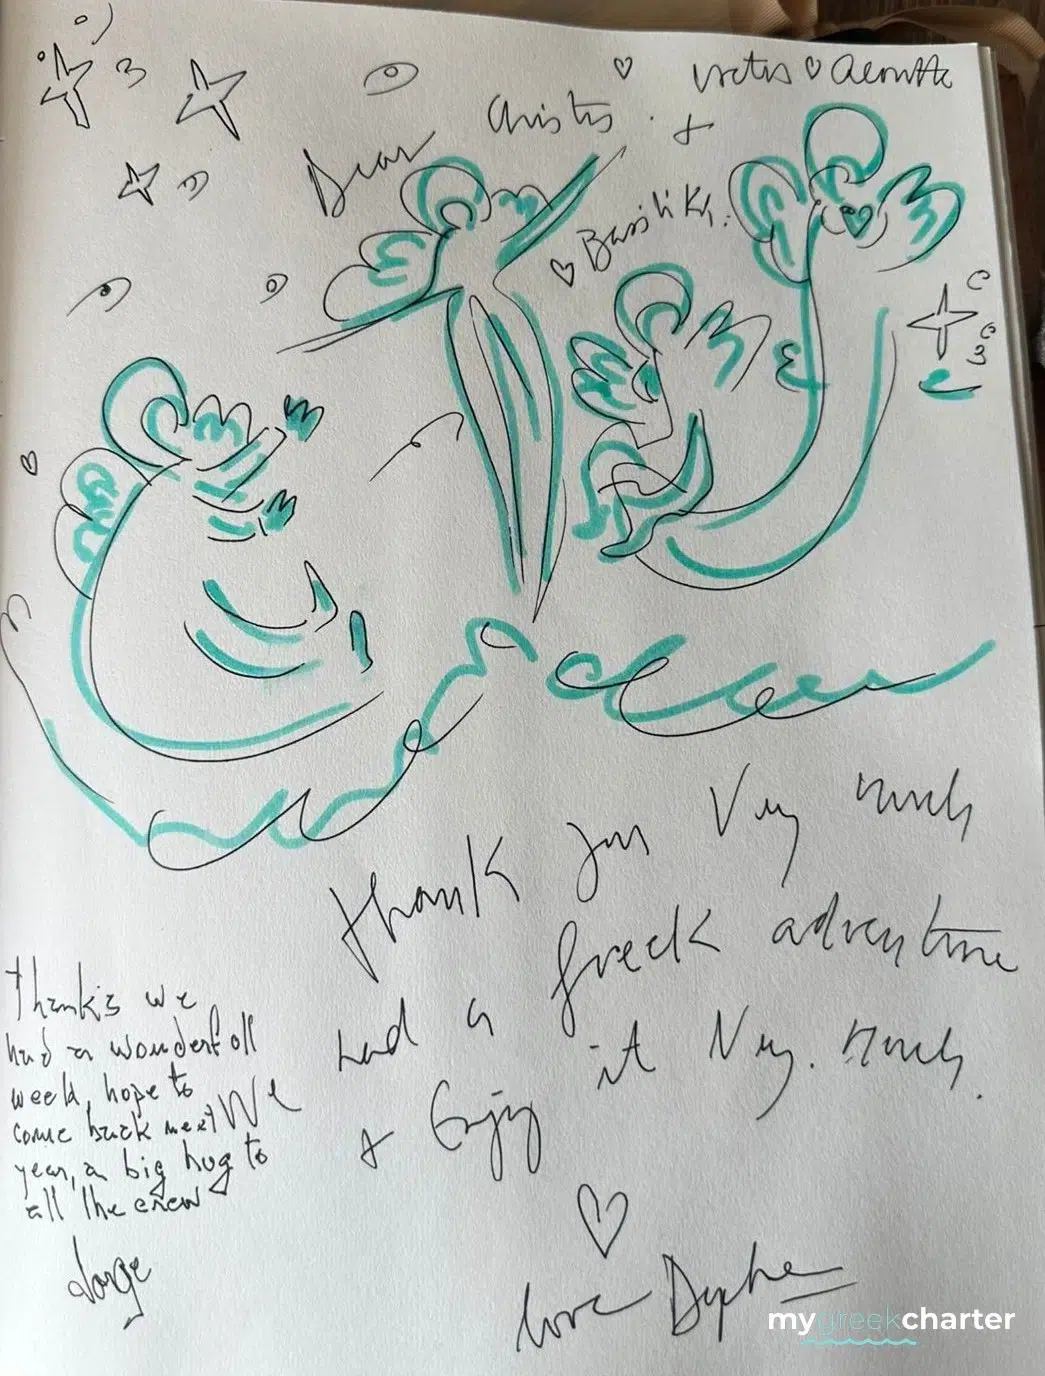 Dear Christos. +
♡ Basiliki.
Thank you Very much
We had a greek adventure
+ Enjoy it Very. Much.
♡
love Daphne
Thanks we
had a wonderfoll
week, hope to
come back next
year, a big hug to
all the crew
Jorge
mygreekcharter